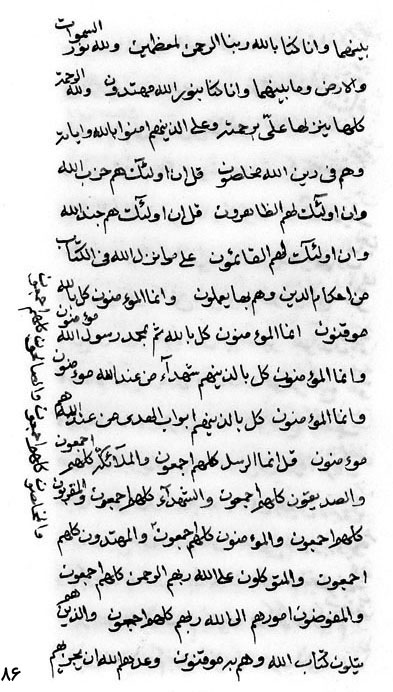 بينهما وانا كنا بالله ربنا الرحمن لمعظمين ولله نور السموات
والارض وما بينهما وانا كنا بنور الله مهتدون ولله الرحمة
كلها ينزلها على برحمته وعلى الذينهم امنوا بالله واياته
وهم فى دين الله مخلصون قل ان اولئك هم حزب الله
وان اولئك لهم الظاهرون قل ان اولئك هم جند الله
وان اولئك لهم القائمون على ما نزل الله فى الكتاب
من احكام الدين وهم بها يعملون وانما المؤمنون كل بالله
موقنون انما المؤمنون كل بالله ثم بمحمد رسول الله موءمنون
وانما المؤمنون كل بالذينهم شهدآء من عند الله موءمنون
وانما المؤمنون كل بالذينهم ابواب الهدى من عند الله هم
موءمنون قل انما الرسل كلهم اجمعون والملآئكة كلهم اجمعون
والصديقون كلهم اجمعون والشهدآء كلهم اجمعون والمقربون
كلهم اجمعون والموءمنون كلهم اجمعون والمهتدون كلهم
اجمعون والمتوكلون على الله ربهم الرحمن كلهم اجمعون
والمفوضون امورهم الى الله ربهم كلهم اجمعون والذينهم
يتلون كتاب الله وهم به موقنون وعدهم الله ان يجزيهم
والمخلصون كلهم اجمعون والصالحون كلهم اجمعون
٨۶